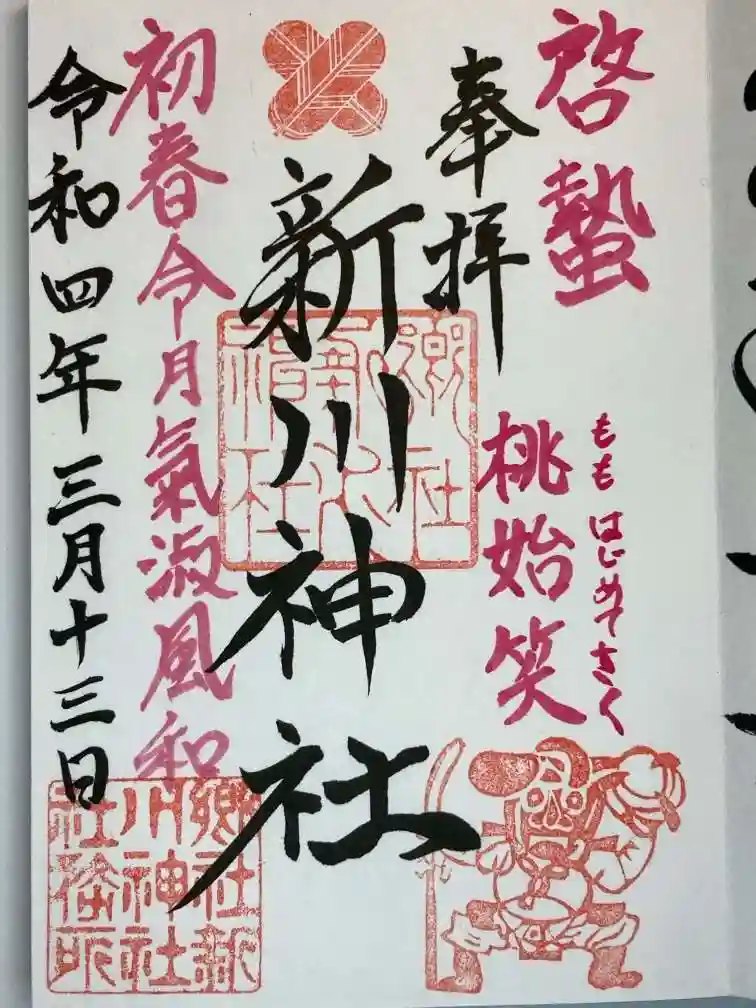 啓蟄
もも はじめてさく
桃始笑
奉拝
新川神社
初春令月氣淑風和
令和四年三月十三日
郷社新
川神社
社務所